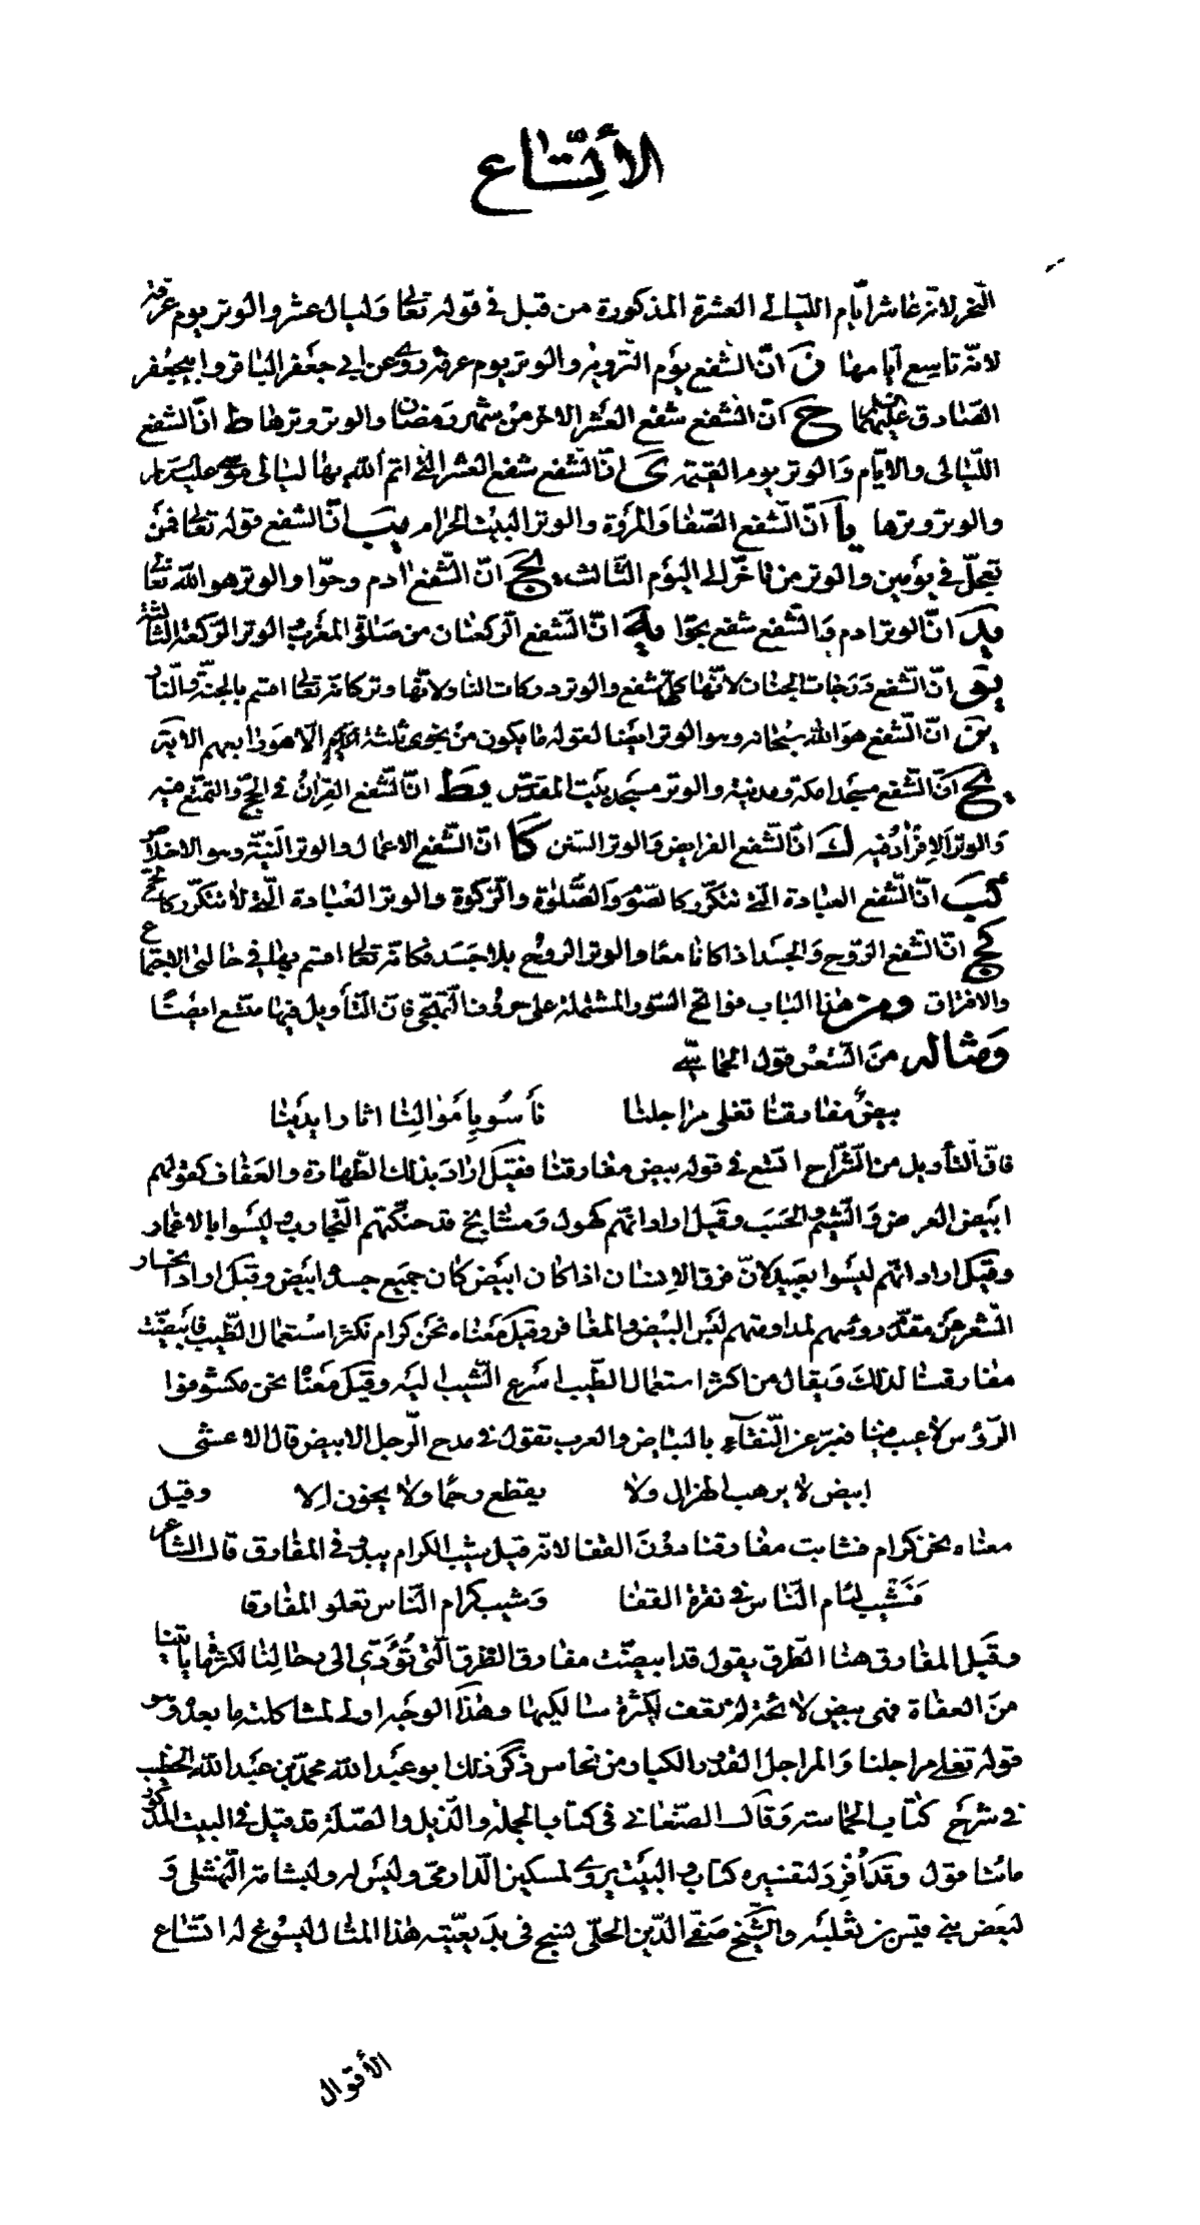 الأتّساع
النّحر لانّه عاشر ايّام اللّيالى العشرة المذكورة من قبل فى قوله تعالى وَليال عشر والوتر يوم عرفة
لانّه تاسع ايامها انّ الشّفع يوم التّروية والوتر يوم عرفة روى عن ابى جعفر الباقر وابيجعفر
الصّادق عليهما ح انّ الشّفع شفع العشر الاخر من شهر رمضان والوتر وترها ط انّ الشّفع
اللّيالى والايّام والوتر يوم القيمة ى انّ الشّفع شفع العشر الّتى اتم الله بها ليالى موسى عليه السلام
والوتر وترها يا انّ الشّفع الصّفا وَالمروة والوتر البيت الحرام يب انّ الشّفع قوله تعالى فمن
تعجّل فى يومين والوتر من تاخّر الى اليوم الثّالث يج انّ الشّفع ادم وحوّا والوتر هو الله تعالى
يد انّ الوتر ادم وَالشّفع شفع بحوّا يه انّ الشّفع الرّكعتان من صلوة المغرب والوتر الرّكعة الثّالثة
يو انّ الشّفع دَرَجات الجنان لانّها كلّها شفع والوتر دركات النّار لانّها وتر كانّه تعالى اقسم بالجنّة والنّار
يز انّ الشّفع هو الله سبحانه وهو الوتر ايضا لقوله ما يكون من نجوى ثلثة الّا هو رابعهم الاية
يح انّ الشّفع مسجدا مكة ومدينة والوتر مسجد بيت المقدّس يط انّ الشّفع القران فى الحجّ والتمتّع فيه
وَالوتر الافراد فيه ك انّ الشّفع الفرايض وَالوتر السّنن كا انّ الشّفع الاعمال والوتر النيّة وهو الاخلاص
كب انّ الشّفع العبادة الّتى تتكرّر كالصّوم وَالصّلوة والزّكوة والوتر العبادة الّتى لا تتكرّر كالحجّ
كج انّ الشّفع الرّوح وَالجسد اذا كانا معًا والوتر الروح بلا جسد فكانّه تعالى اقسم بها فى حالتى الاجتماع
والافتراق ومن هذا الباب فواتح السّور المشتملة على حروف التّهجّى فانّ التّأويل فيها متّسع ايضًا
وَمثاله من الشّعر قول الحماسىّ
بيض مفارقنا تغلى مراجلنا نأسو باموالنا اثار ايدينا
فانّ التّأويل من الشّرّاح اتّسع فى قوله بيض مفارقنا فقيل اراد بذلك الطّهارة والعفاف كقولهم
ابيض العرض وَالشّيم والحسب وقيل اراد انّهم كهول وَمشايخ قد حنّكتهم التّجارب ليسوا بالاغمار
وقيل اراد انّهم ليسوا بعبيد لانّ فرق الانسان اذا كان ابيض كان جميع جسده ابيض وقيل اراد انحسار
الشّعر عن مقدّم روسهم لمداومتهم لبس البيض والمغافر وقيل معناه نحن كرام نكثر استعمال الطّيب فابيضّت
مفارقنا لذلك وَيقال من اكثر استعمال الطّيب اسرع الشّيب اليه وقيل معناه نحن مكشوفوا
الرّؤس لا عيب فينا فعبّر عن النّقاء بالبياض والعرب تقول فى مدح الّرجل الابيض قال الاعشى
ابيض لا يرهب الهزال ولا يقطع رحمًا ولا يخون الا وقيل
معناه نحن كرام فشابت مفارقنا دون القفا لانّه قيل شيب الكرام يبدو فى المفارق قال الشّاعر
فشيب لئام النّاس فى نقرة القفا وَشيب كرام النّاس تعلو المفارقا
وقيل المفارق هنا الطّرق يقول قد ابيضّت مفارق الطّرق الّتى تُؤَدّى الى رحالنا لكثرة ما ياتينا
من العفاة فهى بيض لائحة لم تعف لكثرة سالكيها وهذا الوجه اولى لمشاكلته ما بعده وهو
قوله تغلى مراجلنا وَالمراجل القدور الكبار من نحاس ذكر ذلك ابو عبد الله محمّد بن عبد الله الخطيب
فى شرح كتاب الحماسة وَقال الصّغانى فى كتاب الجملة والذّيل والصّلة قد قيل فى البيت المذكور
مائتا قول وقد اُفرد لتفسيره كتاب والبيت يروى لمسكين الدّارمى وليس له ولبشامة النّهشلى وَ
لبعض بنى قيس بن ثعلبه والشّيخ صفىّ الدّين الحلّى نسج فى بديعيّته هذا المثال ليسوغ له اتّساع
الأقوال